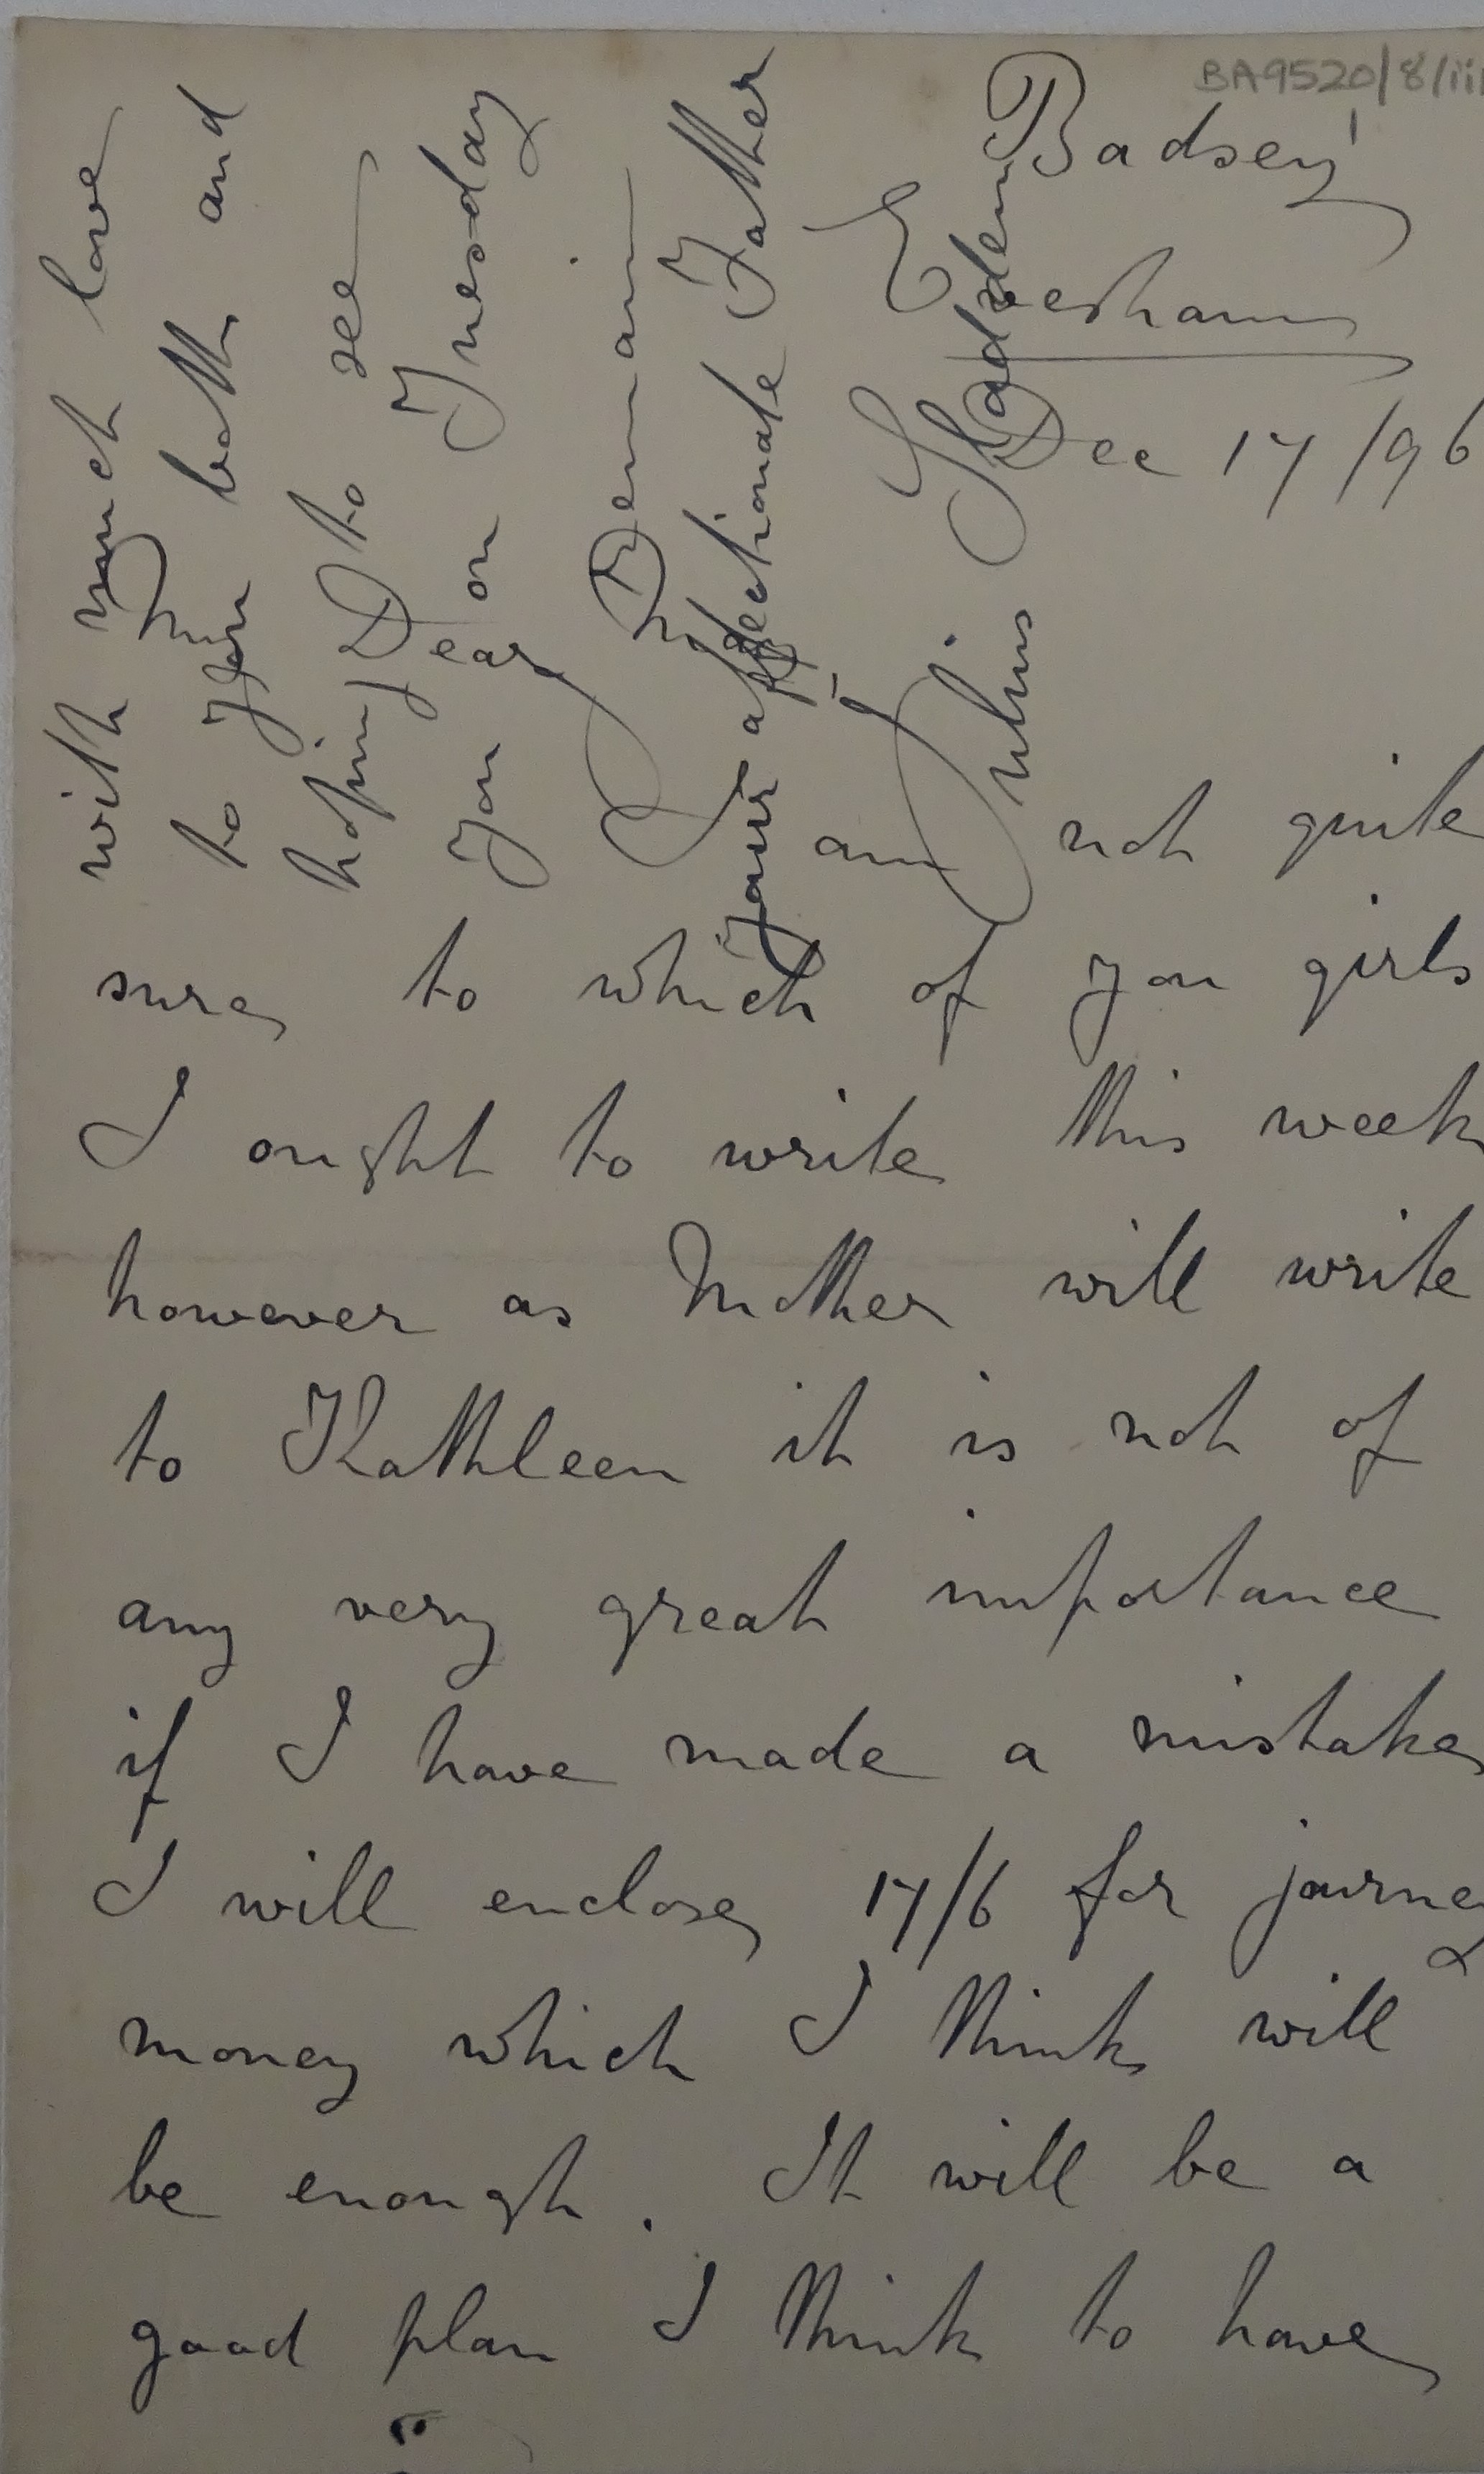 BA9520/8/iii
Badsey
Evesham
Dec 17/96
My Dear May
I am not quite
sure to which of you girls
I ought to write this week
however as Mother will write
to Kathleen it is not of
any very great importance
if I have made a mistake
I will enclose 17/6 for journey
money which I think will
be enough. It will be a
good plan I think to have
with much love
to you both and
hoping to see
you on Tuesday
Remain
Your affectionate Father
Julius Sladden